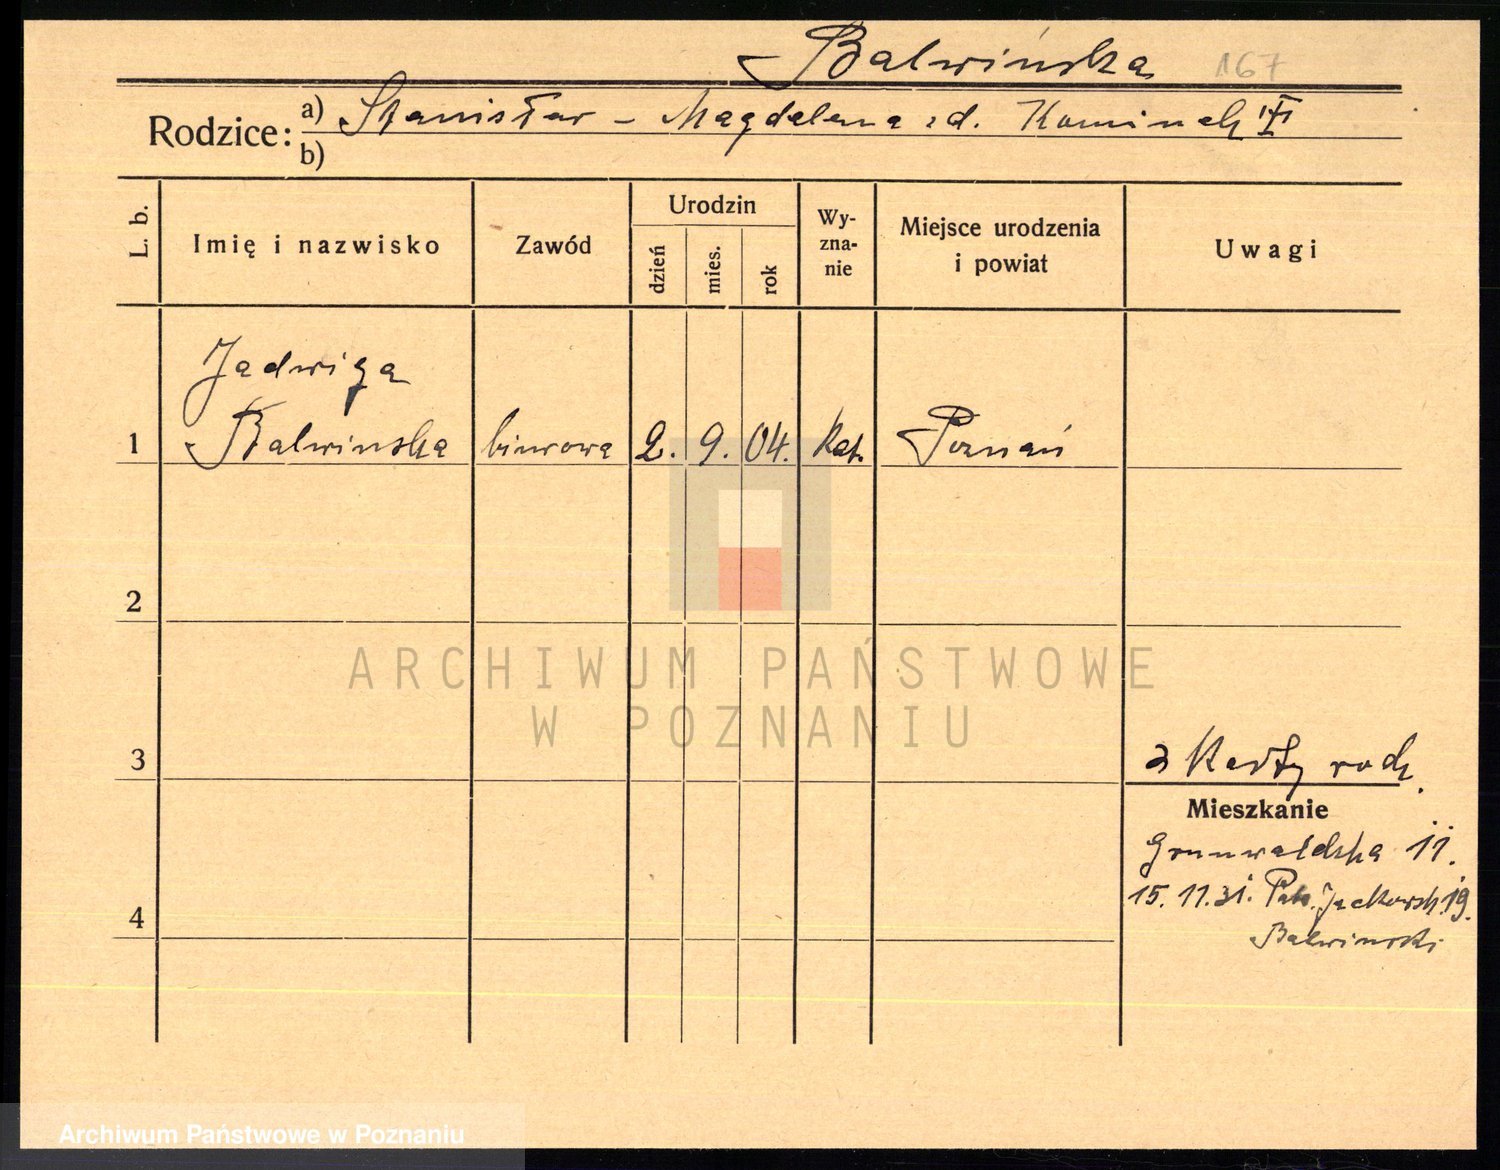 Balwińska 167
Rodzice: a) Stanisław - Magdalena z d. Kominek
b)
L. b.
Imię i nazwisko
Zawód
Urodzin
dzień
mies.
rok
Wy-
zna-
nie
Miejsce urodzenia
i powiat
Uwagi
Jadwiga
1 Balwinska biurowa 2. 9. 04. kat. Poznań
2
ARCHIWUM PAŃSTWOWE
W POZNANIU
3
z Karty rodz.
Mieszkanie
Grunwaldzka 11.
15. 11. 31. Jackowsk. 19.
4
Balwinski
Archiwum Państwowe w Poznaniu